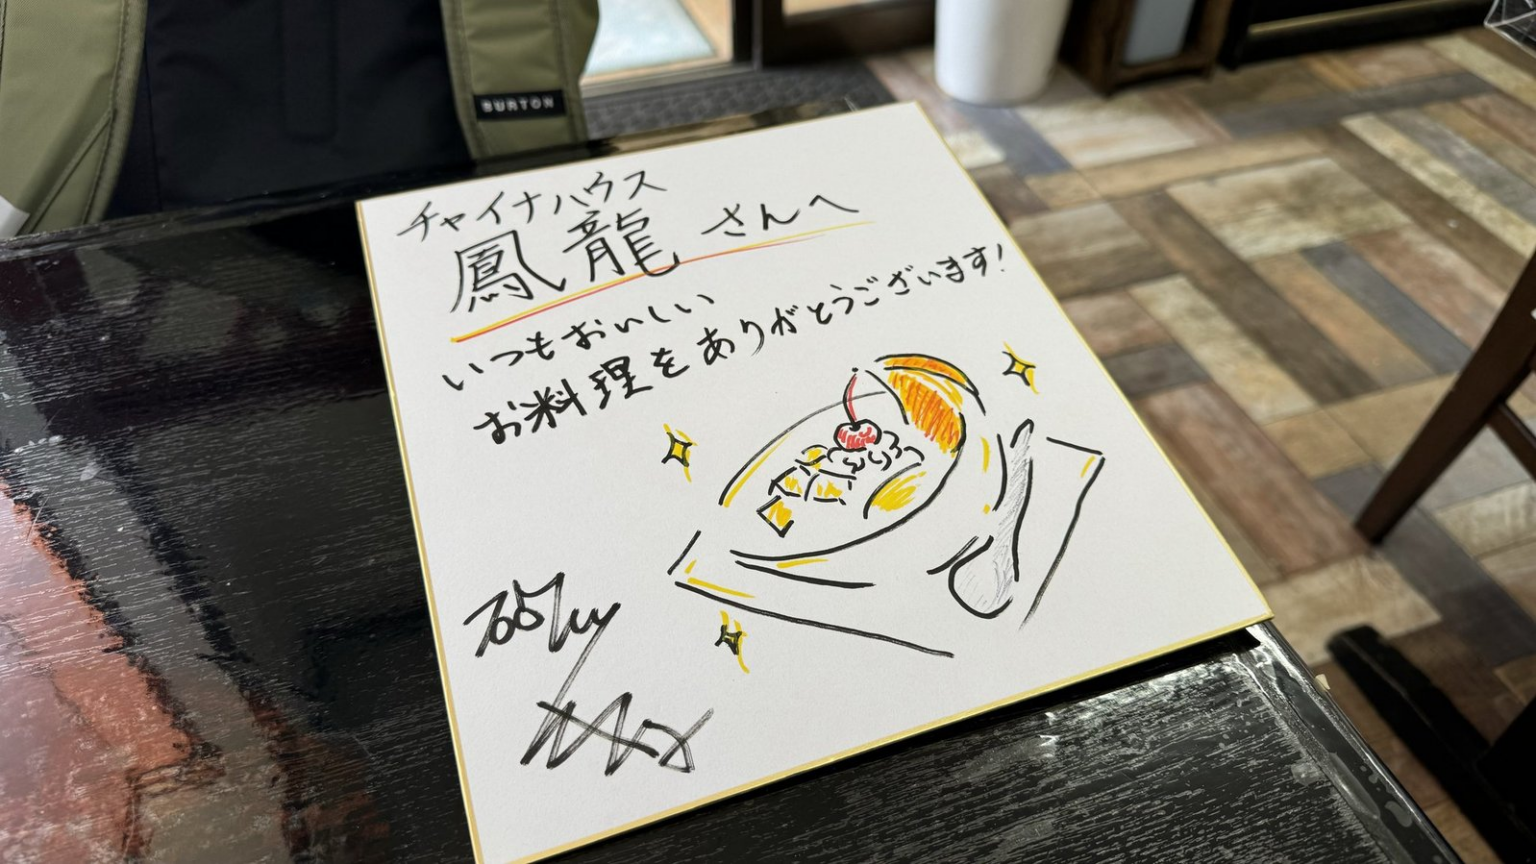 BURTON
チャイナハウス
鳳龍 さんへ
いつもおいしい
お料理をありがとうございます!